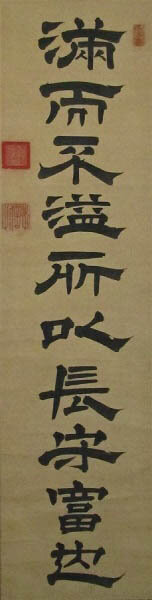 滿而不溢所以長守富也